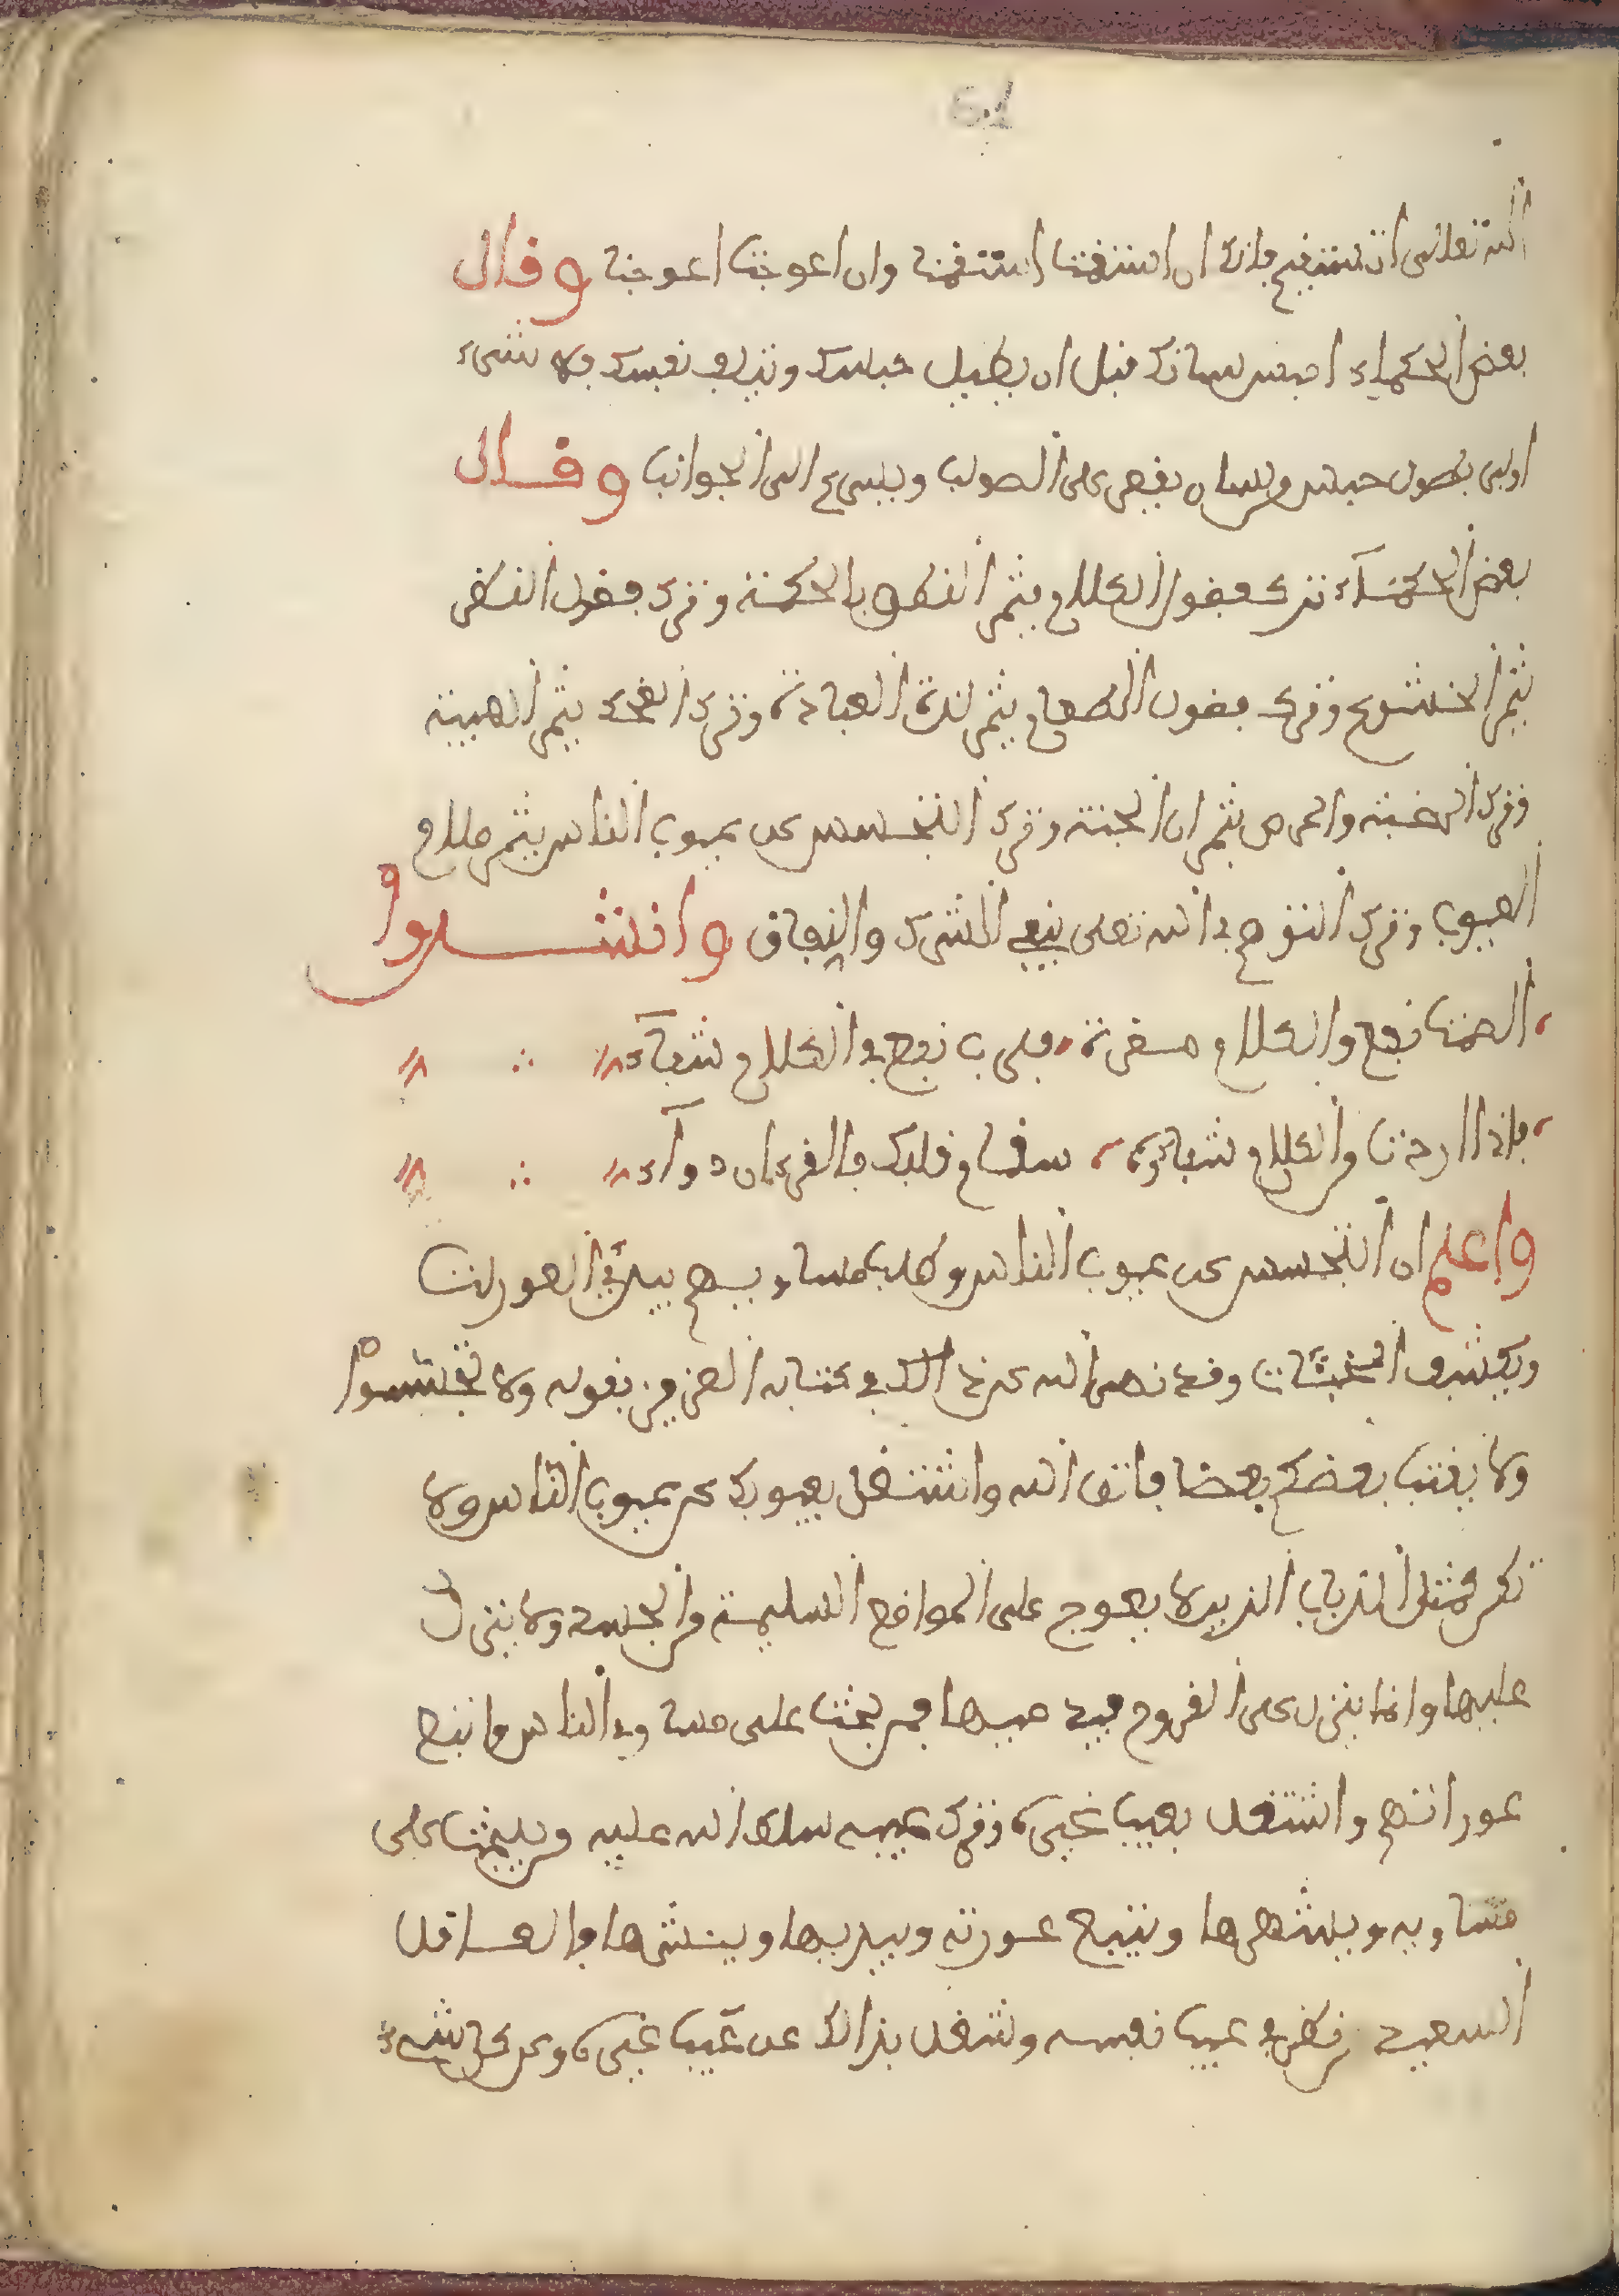 الله تعالى ان تستقيم فانك ان استقمت استقمنا وان اعوجت اعوجنا وقال
بعض الحكماء احبس لسانك قبل ان يطيل حبسك ويتلف نفسك فلا شيء
اولى بطول حبس من لسان يقصر على الصواب ويسرع الى الجواب وقال
بعض الحكمآء ترك فضول الكلام يثمر النطق بالحكمة وترك فضول النظر
يثمر الخشوع وترك فضول الطعام يثمر لذة العبادة وترك الضحك يثمر الهيبة
وترك الرغبة والحرص يثمران المحبة وترك التجسس عن عيوب الناس يثمر صلاح
العيوب وترك التوهم في الله تعلى ينفي الشرك والنفاق وانشدوا
الصمت نفع والكلام مضرة فلرب نفع في الكلام شفآء
فاذا اردت من الكلام شفاءه سقام قلبك فالقرءان دوآء
واعلم ان التجسس عن عيوب الناس وطلب مساويهم يبدي العورات
ويكشف المخبئات وقد نهى الله عن ذالك في كتابه العزيز بقوله ولا تجسسوا
ولا يغتب بعضكم بعضا فاتق الله واشتغل بعيوبك عن عيوب الناس ولا
تكن كمثل الذباب الذي لا يعوج على المواضع السليمة من الجسد ولا ينزل
عليها وانما ينزل على القروح فيدميها فمن بحث على مساوي الناس واتبع
عوراتهم واشتغل بعيب غيره وترك عيبه سلط الله عليه من يبحث على
مساويه ويشهرها ويتبع عورته ويبديها وينشرها والعاقل
السعيد من نظر في عيب نفسه وشغل بذالك عن عيب غيره وعن كل شيء